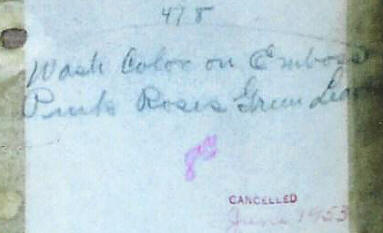 478
Wash Color on Emboss
Pink Roses Green Leav
CANCELLED
June 1953